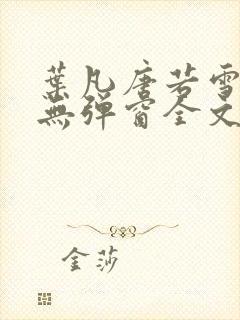 葉凡唐若雪
無彈窗全文
金莎